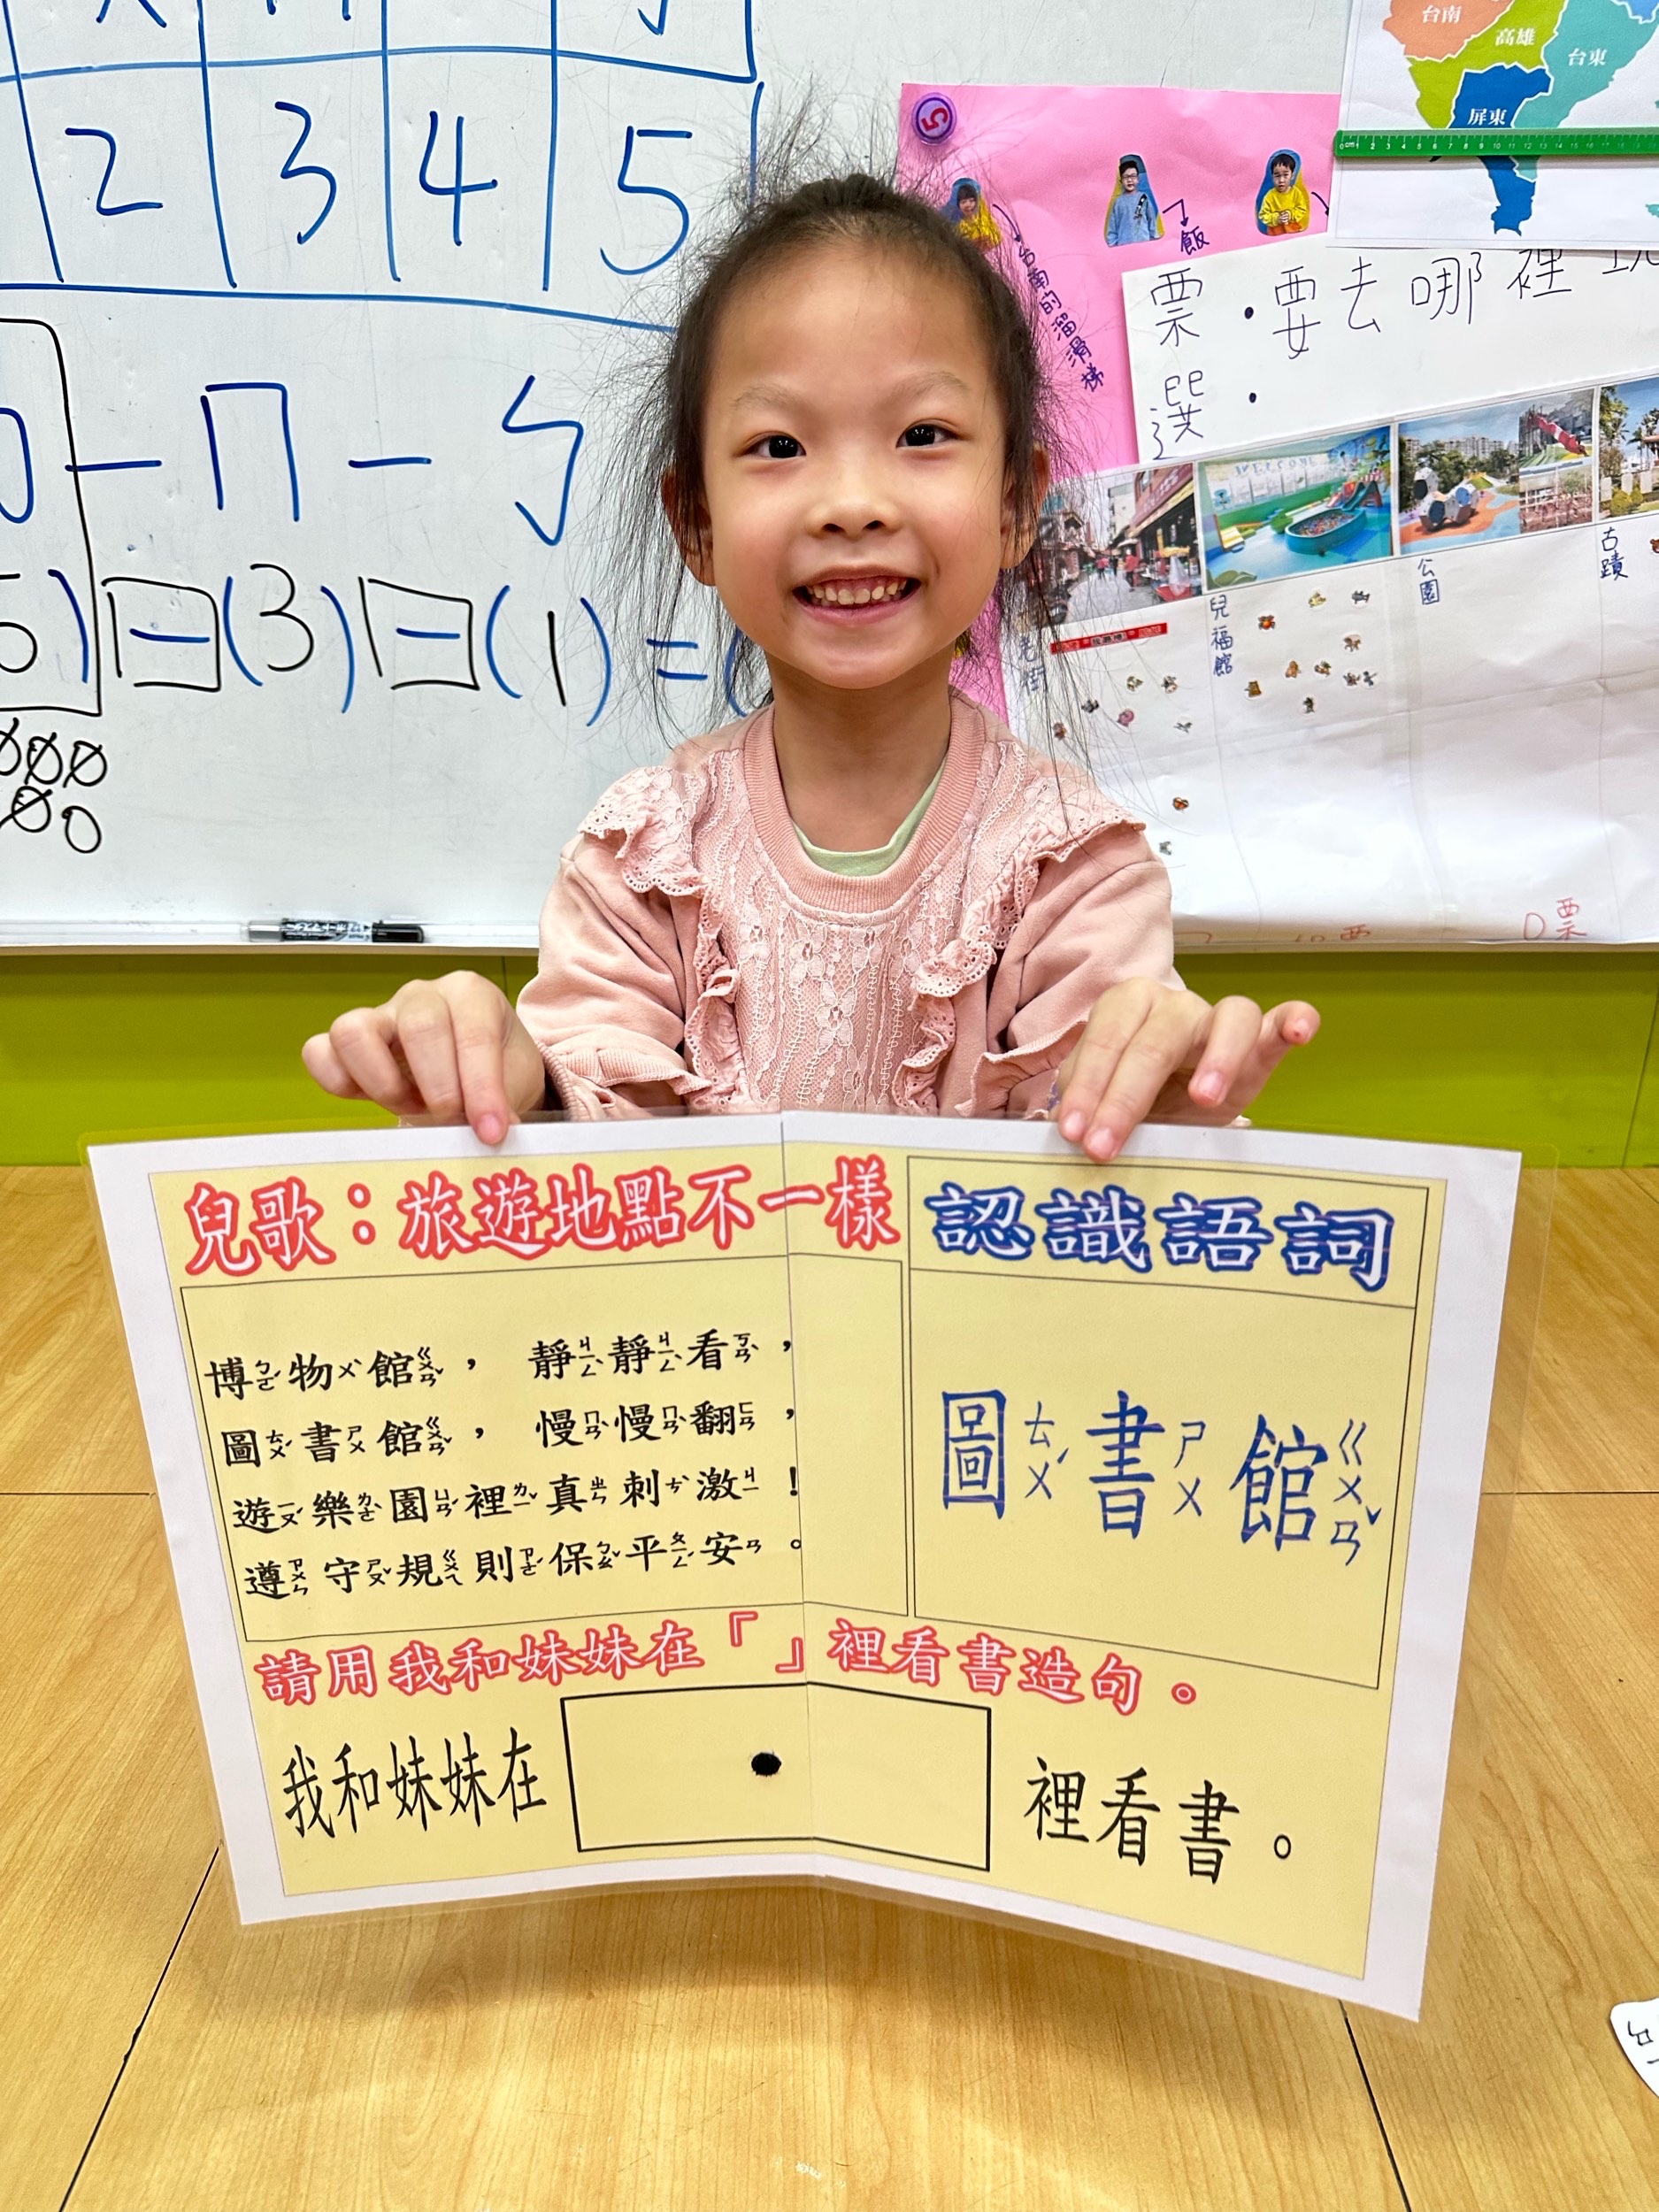 2 3 4 5
台南
高雄
台東
屏東
飯
台南的溜滑梯
票 · 要去哪裡
選 ·
- ㄇ - ㄣ
(3) - (1) =
WELCOME
老街
兒福館
公園
古蹟
0票
兒歌：旅遊地點不一樣
博ㄅㄛˊ物ㄨˋ館ㄍㄨㄢˇ， 靜ㄐㄧㄥˋ靜ㄐㄧㄥˋ看ㄎㄢˋ，
圖ㄊㄨˊ書ㄕㄨ館ㄍㄨㄢˇ， 慢ㄇㄢˋ慢ㄇㄢˋ翻ㄈㄢ，
遊ㄧㄡˊ樂ㄌㄜˋ園ㄩㄢˊ裡ㄌㄧˇ真ㄓㄣ刺ㄘˋ激ㄐㄧ！
遵ㄗㄨㄣ守ㄕㄡˇ規ㄍㄨㄟ則ㄗㄜˊ保ㄅㄠˇ平ㄆㄧㄥˊ安ㄢ。
認識語詞
圖ㄊㄨˊ書ㄕㄨ館ㄍㄨㄢˇ
請用我和妹妹在「 」裡看書造句。
我和妹妹在 裡看書。